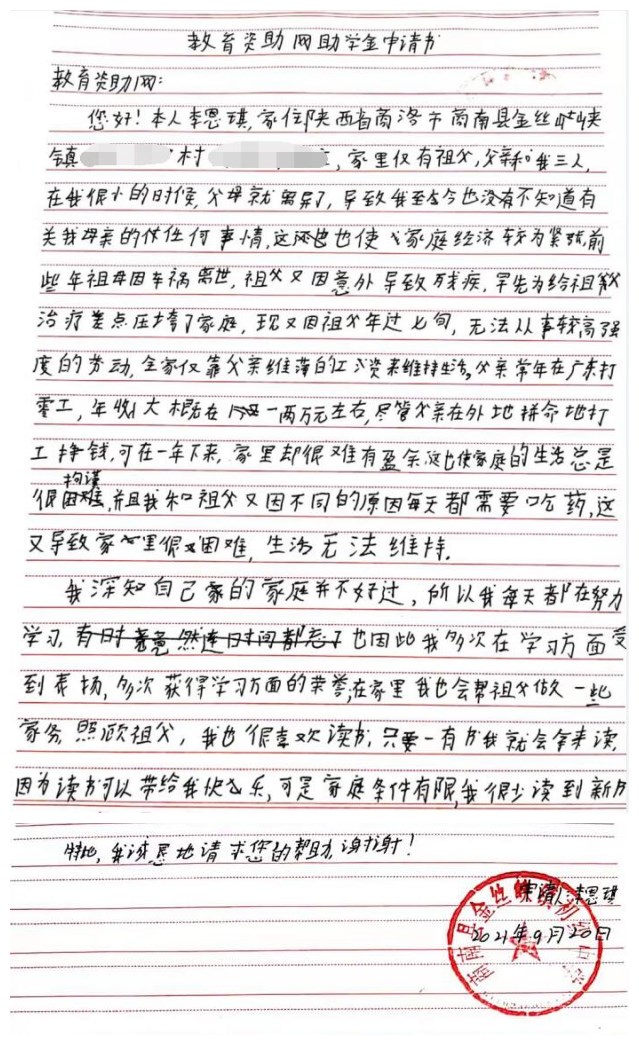 教育资助网助学金申请书
教育资助网:
您好!本人李思琪,家住陕西省商洛市商南县金丝峡
镇 村 ,家里仅有祖父,父亲和我三人,
在我很小的时候,父母就离异了,导致我至今也没有不知道有
关我母亲的任何事情,这也使家庭经济较为紧张,前
些年祖母因车祸离世,祖父又因意外导致残疾,早先为给祖父
治疗差点压垮了家庭,现又因祖父年过七旬,无法从事较高强
度的劳动,全家仅靠父亲维薄的工资来维持生活,父亲常年在广东打
零工,年收大概在一两万元左右,尽管父亲在外地拼命地打
工挣钱,可在一年下来,家里却很难有盈余,这也使家庭的生活总是
很拘谨,并且我和祖父又因不同的原因每天都需要吃药,这
又导致家里很困难,生活无法维持.
我深知自己家的家庭并不好过,所以我每天都在努力
学习,有时竟然连时间都忘了也因此我多次在学习方面受
到表扬,多次获得学习方面的荣誉,在家里我也会帮祖父做一些
家务,照顾祖父,我也很喜欢读书,只要一有书我就会拿来读,
因为读书可以带给我快乐,可是家庭条件有限,我很少读到新书
特此,我诚恳地请求您的帮助,谢谢!
申请人:李思琪
2021年9月20日
商南县金丝峡镇初级中学